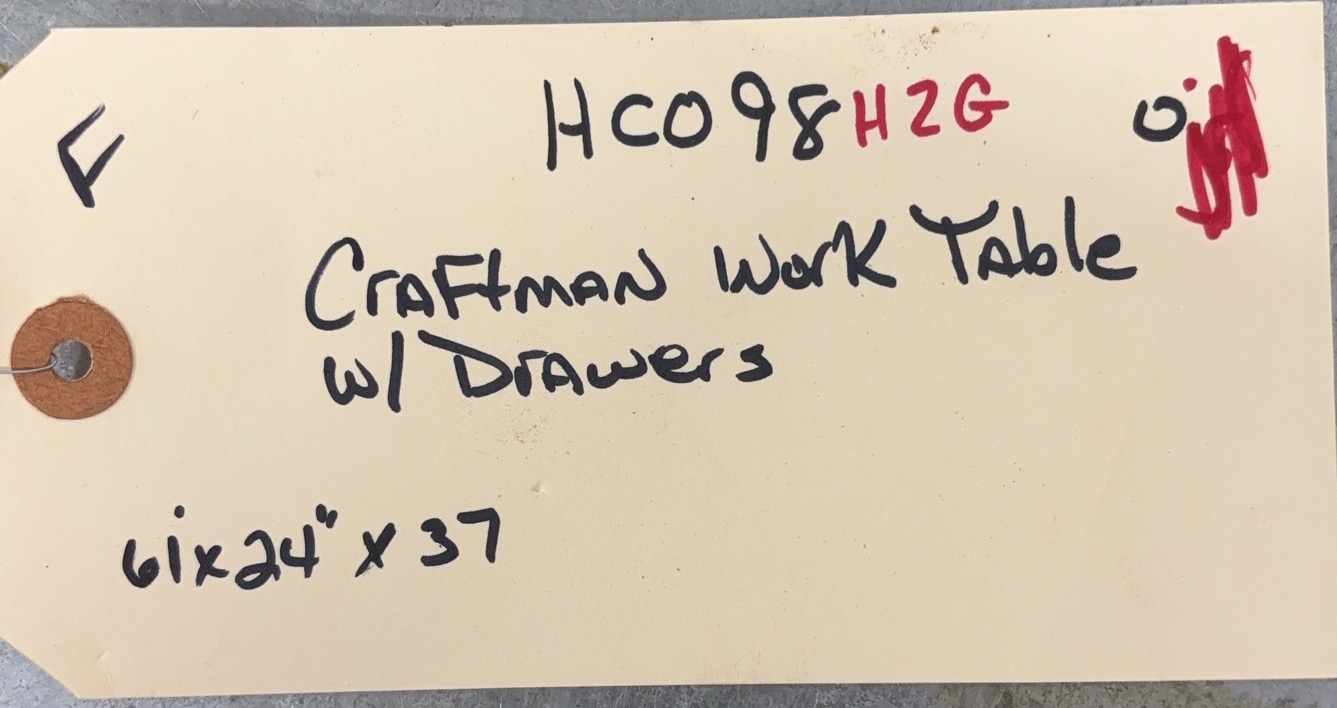 F
HC098 H2G O
CrAFtmAN Work TAble
w/ DrAwers
61"x24" x 37